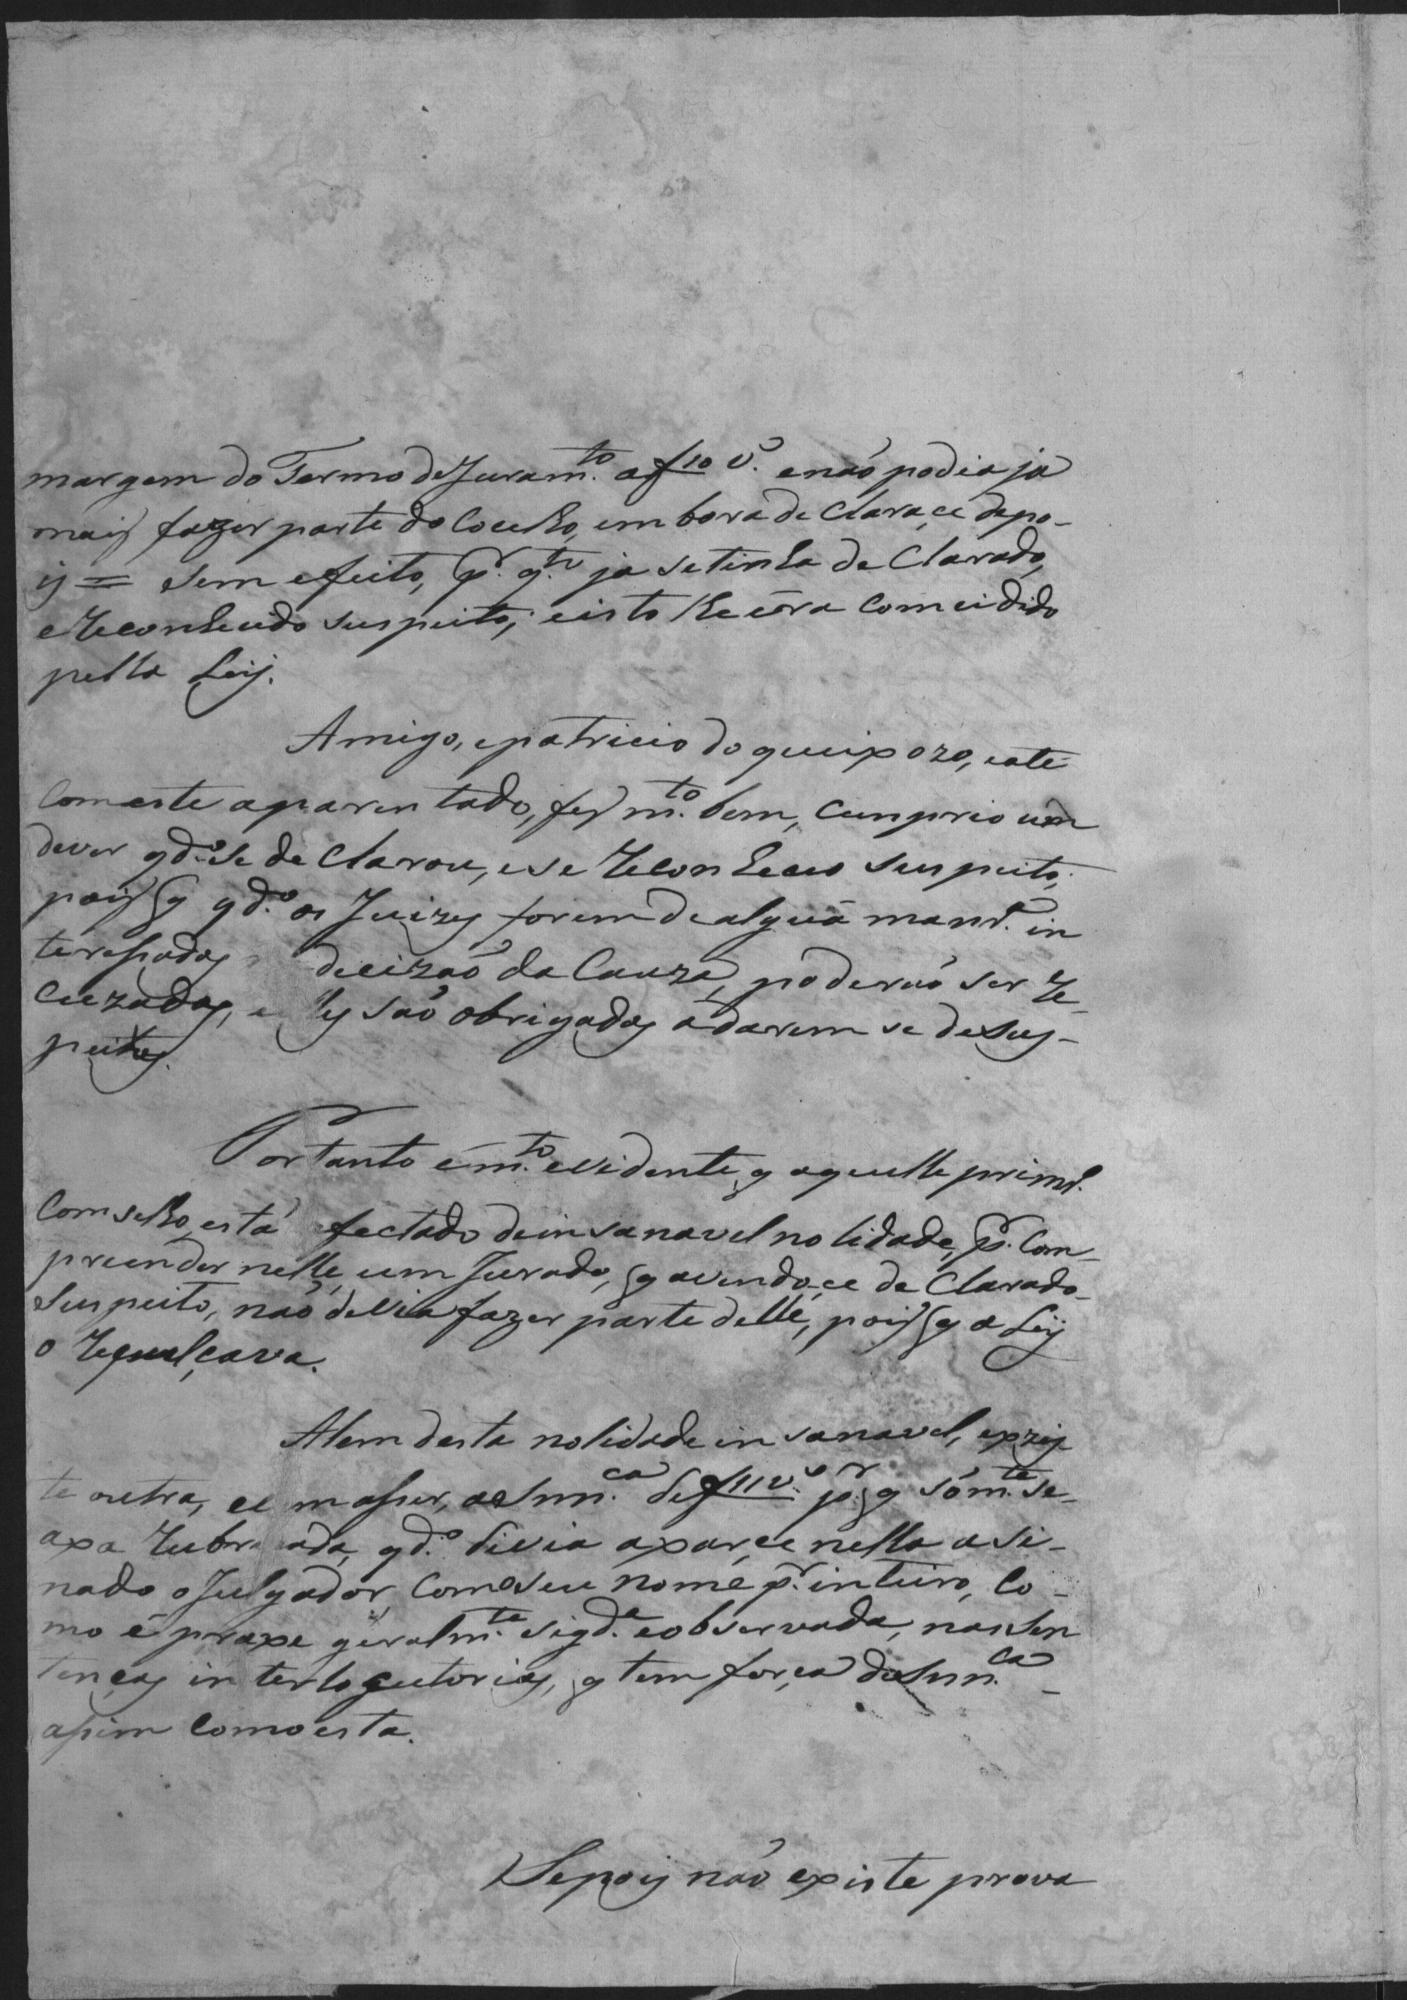 margem do Termo de Juram.to a f 10 v.º e naõ podia ja
mais fazer parte do Cocelho, em bora de Clara,ce depo-
is = sem efeito, p.r q.to ja se tinha de Clarado,
e Reconhecido suspeito, e isto lhe éra Comcidido
pella Leij.
Amigo, e patricio do queixozo, e até
Com este aparentado, fes m.to bem, Cumprio um
dever q.do se de Clarou, e se Reconheceo suspeito,
pois q q.do os Juizes forem de alguã man.ra in
teressados decizaõ da Cauza, poderaõ ser Re-
cuzados, e saõ obrigados a darem se de sus-
peitos.
Portanto é m.to evidente q aquelle prim.ro
Comselho, está fectado de insanavel nolidade, p.r Com-
preender nelle, um Jurado, q avendo,ce de Clarado-
Suspeito, naõ devia fazer parte delle, pois q a Leij
o Regulçava.
Alem desta nolidade insanavel, exzis
te outra, e maior, a Snn.ca de f 11 v.º p.r q sóm.te se-
axa Rubricada, q.do divia axar,ce nella asi-
nado o Julgador, Com o seu nome p.r inteiro, Co-
mo é praxe geralm.te sigd.a e observada, nas Sen
tenças interlocutorias, q tem força de Snn.ca -
asim Como esta.
Depois naõ existe prova